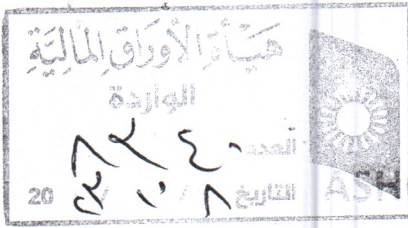 هيأة الأوراق المالية
الواردة
العدد ٨٢٤٠
التاريخ ٨ / 20